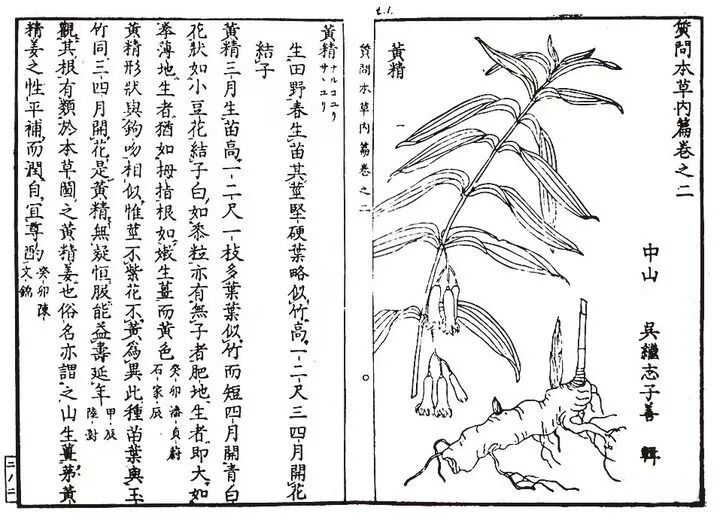 質問本草内篇卷之二
中山 吳繼志子善 輯
黃精
一
質問本草内篇卷之二
黃精 ナルコユリ サヽユリ
生田野春生苗其莖堅硬葉略似竹高一二尺三四月開花
結子
黃精三月生苗高一二尺一枝多葉葉似竹而短四月開青白
花狀如小豆花結子白如黍粒亦有無子者肥地生者即大如
拳薄地生者猶如拇指根如嫩生薑而黃色 癸卯潘貞蔚 石家辰
黃精形狀與鉤吻相似惟莖不紫花不黃為異此種苗葉與玉
竹同三四月開花是黃精無疑恒服能益壽延年 甲辰 陸澍
觀其根有類於本草圖之黃精姜也俗名亦謂之山生薑第黃
精姜之性平補而潤自宜尊酌 癸卯陳 文錦
二八二